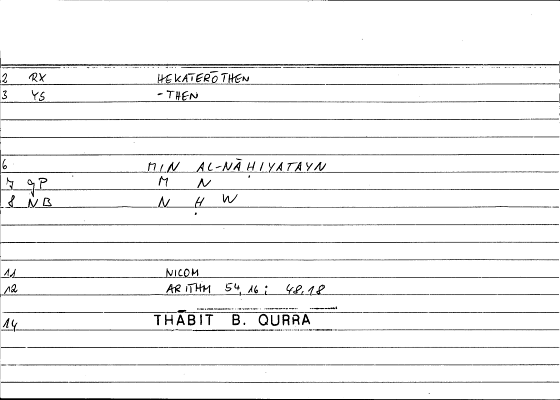 2 RX HEKATERŌTHEN
3 YS -THEN
6 MIN AL-NĀḤIYATAYN
7 gP M N
8 NB N Ḥ W
11 NICOM
12 ARITHM 54,16 : 48,18
14 THĀBIT B. QURRA